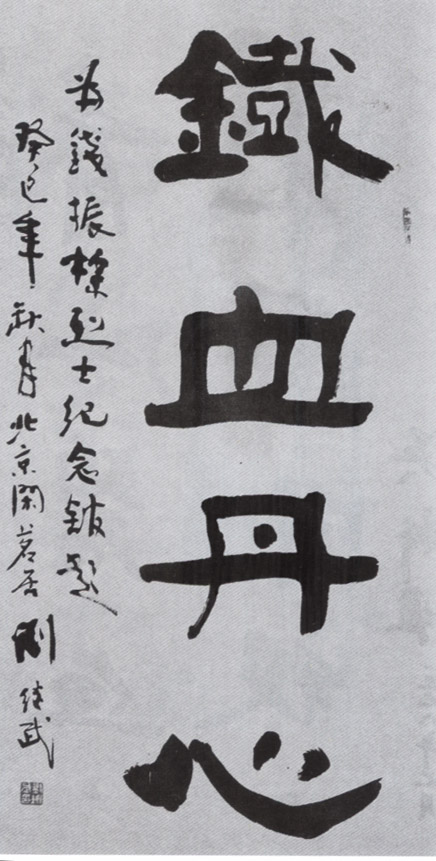 鐵血丹心
为錢振標烈士纪念館題
癸巳年秋月北京閑茗居劉继武